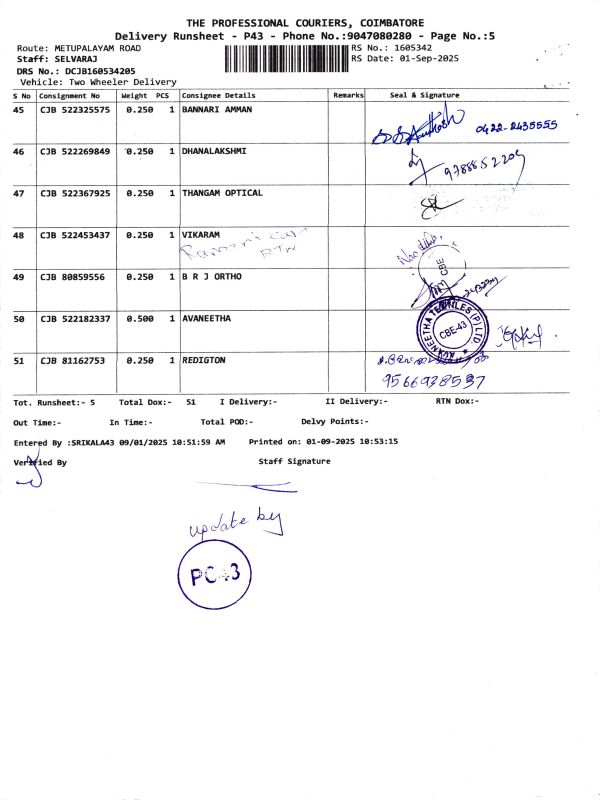 THE PROFESSIONAL COURIERS, COIMBATORE
Delivery Runsheet - P43 - Phone No.:9047080280 - Page No.:5
Route: METUPALAYAM ROAD RS No.: 1605342
Staff: SELVARAJ RS Date: 01-Sep-2025
DRS No.: DCJB160534205
Vehicle: Two Wheeler Delivery
S No Consignment No Weight PCS Consignee Details Remarks Seal & Signature
45 CJB 522325575 0.250 1 BANNARI AMMAN
0422-2435555
46 CJB 522269849 0.250 1 DHANALAKSHMI
9788852204
47 CJB 522367925 0.250 1 THANGAM OPTICAL
48 CJB 522453437 0.250 1 VIKARAM
RTN
CBE
49 CJB 80859556 0.250 1 B R J ORTHO
50 CJB 522182337 0.500 1 AVANEETHA
AVANEETHA TEXTILES (P) LTD
CBE-43
51 CJB 81162753 0.250 1 REDIGTON
9566938537
Tot. Runsheet:- 5 Total Dox:- 51 I Delivery:- II Delivery:- RTN Dox:-
Out Time:- In Time:- Total POD:- Delvy Points:-
Entered By :SRIKALA43 09/01/2025 10:51:59 AM Printed on: 01-09-2025 10:53:15
Verified By Staff Signature
update by
PC43